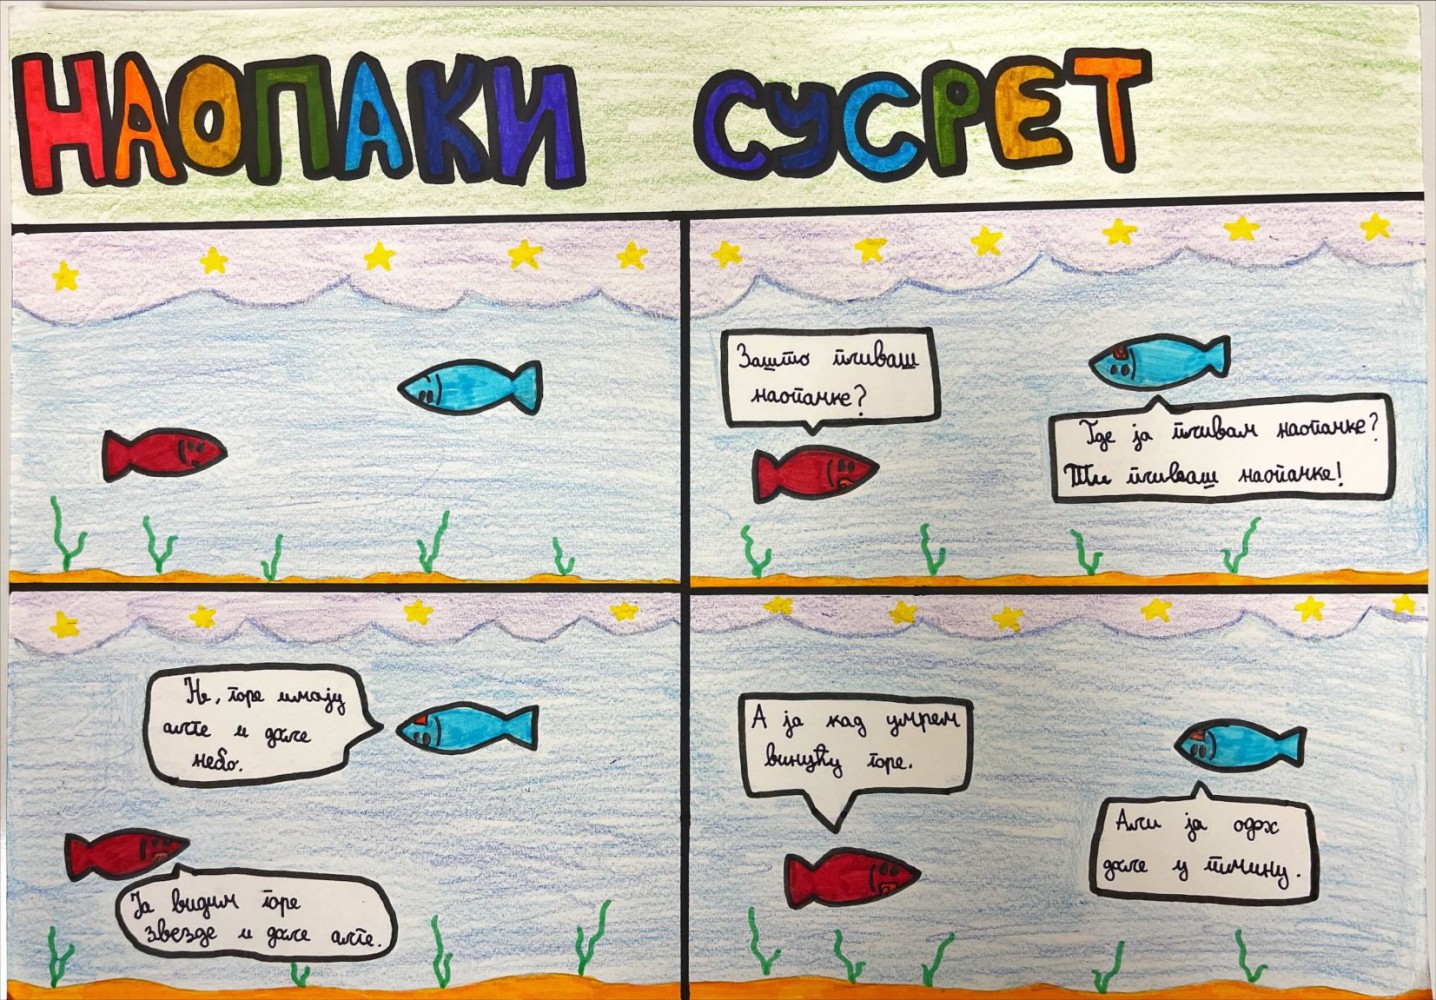 НАОПАКИ СУСРЕТ
Зашто пливаш
наопачке?
Где ја пливам наопачке?
Ти пливаш наопачке!
Не, горе имају
алге и доле
небо.
Ја видим горе
звезде и доле алге.
А ја кад умрем
винућу горе.
Али ја одох
доле у тмину.